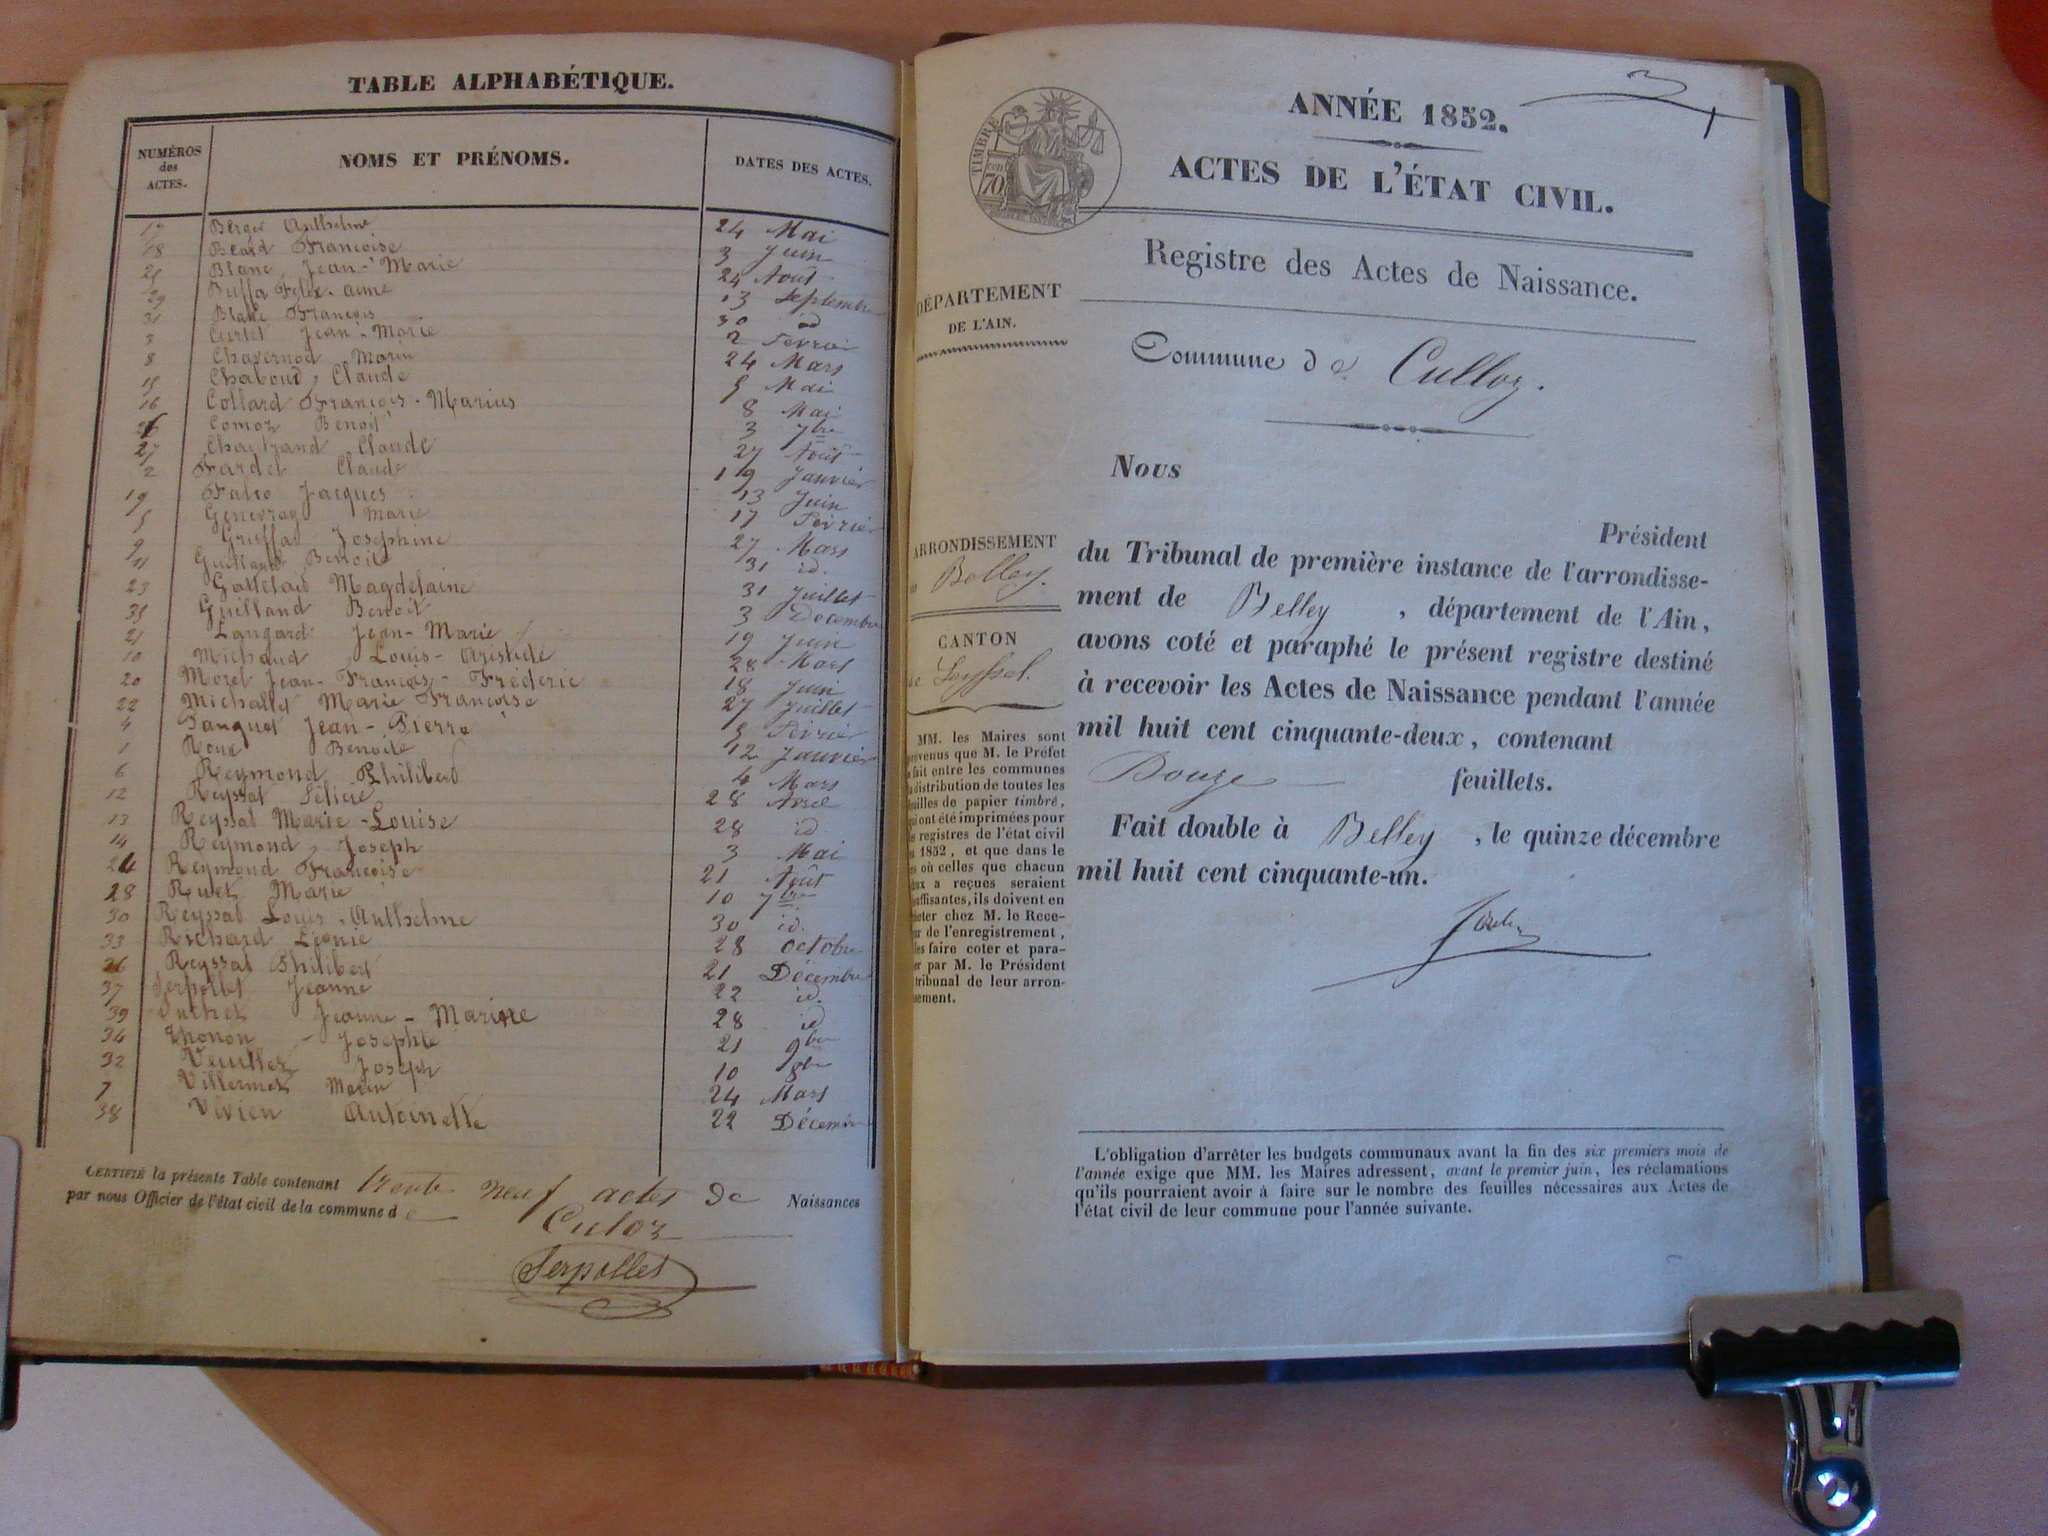 TABLE ALPHABÉTIQUE.
NUMÉROS des ACTES.
NOMS ET PRÉNOMS.
DATES DES ACTES.
17 Berger Anthelme 24 Mai
18 Béard Françoise 3 Juin
25 Blanc, Jean-Marie 24 Août
29 Buffa Félix-aimé 13 Septembre
31 Blanc François 30 id
3 Curtet Jean-Marie 2 Février
8 Chavernod Marin 24 Mars
15 Chaboud, Claude 5 Mai
16 Collard François-Marius 8 Mai
26 Comoz Benoit 3 7bre
27 Claude 27 Août
2 Fardel Claude 19 Janvier
19 Jacques 13 Juin
5 Genevray Marie 17 Février
9 Josephine 27 Mars
11 Guilland Benoite 31 id.
23 Magdelaine 31 Juillet
35 Guilland Benoit 3 Décembre
21 Langard Jean-Marie 19 Juin
10 Michaud Louis-Aristide 28 Mars
20 Morel Jean-François-Frédéric 18 Juin
22 Michallet Marie Françoise 27 Juillet
4 Jean-Pierre 5 Février
1 Roux Benoite 12 Janvier
6 Reymond Philibert 4 Mars
12 Reyssat 28 Avril
13 Reyssat Marie-Louise 28 id
14 Reymond, Joseph 3 Mai
24 Reymond Françoise 21 Août
28 Ruet Marie 10 7bre
30 Reyssat Louis-Anthelme 30 id.
33 Richard 28 Octobre
36 Reyssat Philibert 21 Décembre
37 Serpollet Jeanne 22 id.
39 Jeanne-Marine 28 id
34 Thonon Josephte 21 9bre
32 Veuillez Joseph 10 8bre
7 Villermet Marin 24 Mars
38 Vivien Antoinette 22 Décembre
CERTIFIÉ la présente Table contenant trente neuf actes de Naissances
par nous Officier de l'état civil de la commune de Culoz
Serpollet
TIMBRE
70
ANNÉE 1852.
ACTES DE L'ÉTAT CIVIL.
Registre des Actes de Naissance.
DÉPARTEMENT
DE L'AIN.
Commune de Culloz.
Nous
Président
ARRONDISSEMENT
Belley.
CANTON
Seyssel.
du Tribunal de première instance de l'arrondisse-
ment de Belley, département de l'Ain,
avons coté et paraphé le présent registre destiné
à recevoir les Actes de Naissance pendant l'année
mil huit cent cinquante-deux, contenant
Douze feuillets.
Fait double à Belley, le quinze décembre
mil huit cent cinquante-un.
MM. les Maires sont
prévenus que M. le Préfet
a fait entre les communes
la distribution de toutes les
feuilles de papier timbré,
qui ont été imprimées pour
les registres de l'état civil
1852, et que dans le
cas où celles que chacun
d'eux a reçues seraient
insuffisantes, ils doivent en
acheter chez M. le Rece-
veur de l'enregistrement,
les faire coter et para-
pher par M. le Président
tribunal de leur arron-
dissement.
L'obligation d'arrêter les budgets communaux avant la fin des six premiers mois de
l'année exige que MM. les Maires adressent, avant le premier juin, les réclamations
qu'ils pourraient avoir à faire sur le nombre des feuilles nécessaires aux Actes de
l'état civil de leur commune pour l'année suivante.